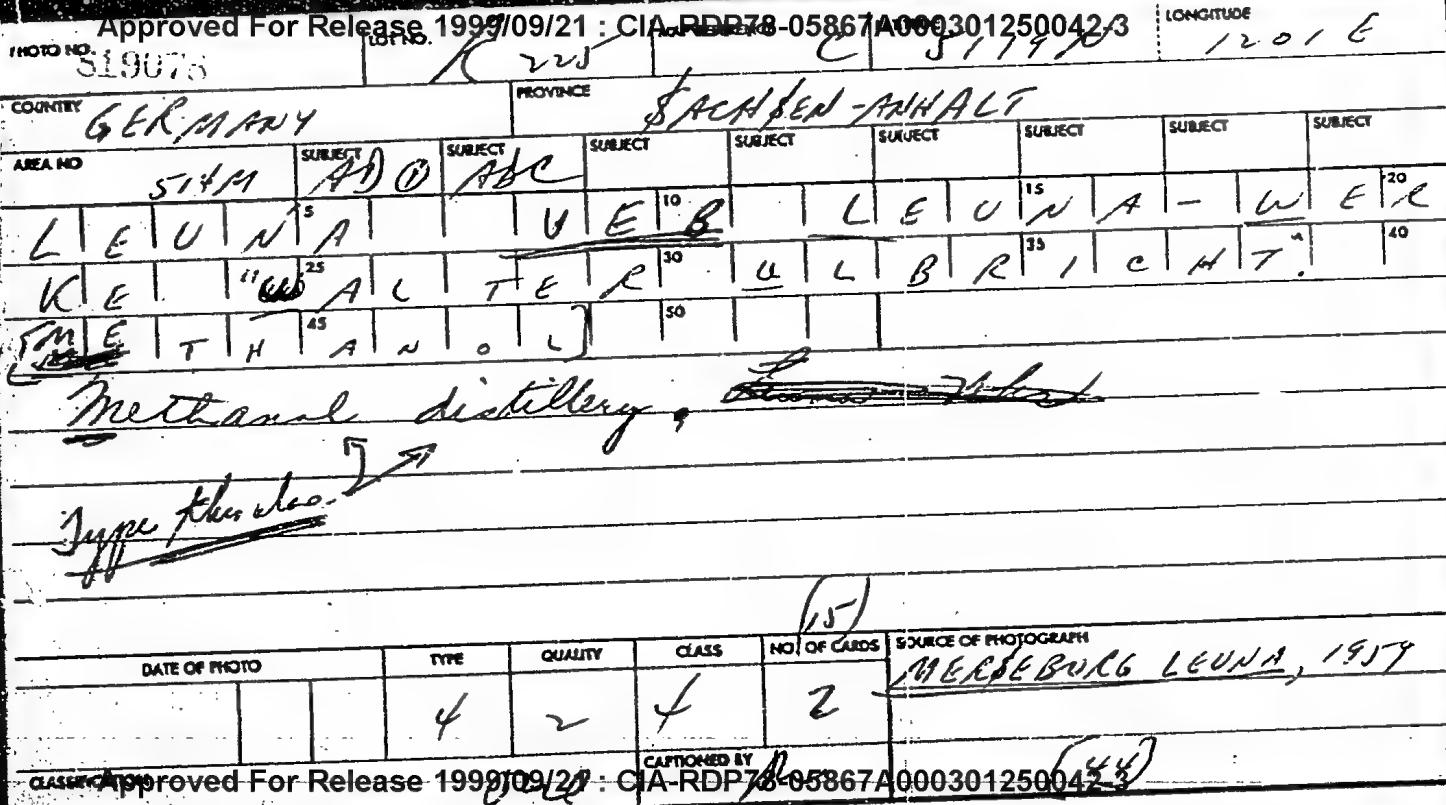 Approved For Release 1999/09/21 : CIA-RDP78-05867A000301250042-3
PHOTO NO. 519078 LOT NO. K 225 C 5119 N LONGITUDE 1201 E
COUNTRY GERMANY PROVINCE SACHSEN-ANHALT
AREA NO 514M SUBJECT AD ① SUBJECT ABC SUBJECT SUBJECT SUBJECT SUBJECT SUBJECT SUBJECT
LEUNA VEB LEUNA-WER
KE "WALTER ULBRICHT."
[METHANOL]
Methanol distillery.
Type this also.
(15)
DATE OF PHOTO TYPE QUALITY CLASS NO. OF CARDS SOURCE OF PHOTOGRAPH
4 2 4 2 MERSEBURG LEUNA, 1959
CLASSIFICATION CAPTIONED BY (44)
Approved For Release 1999/09/21 : CIA-RDP78-05867A000301250042-3